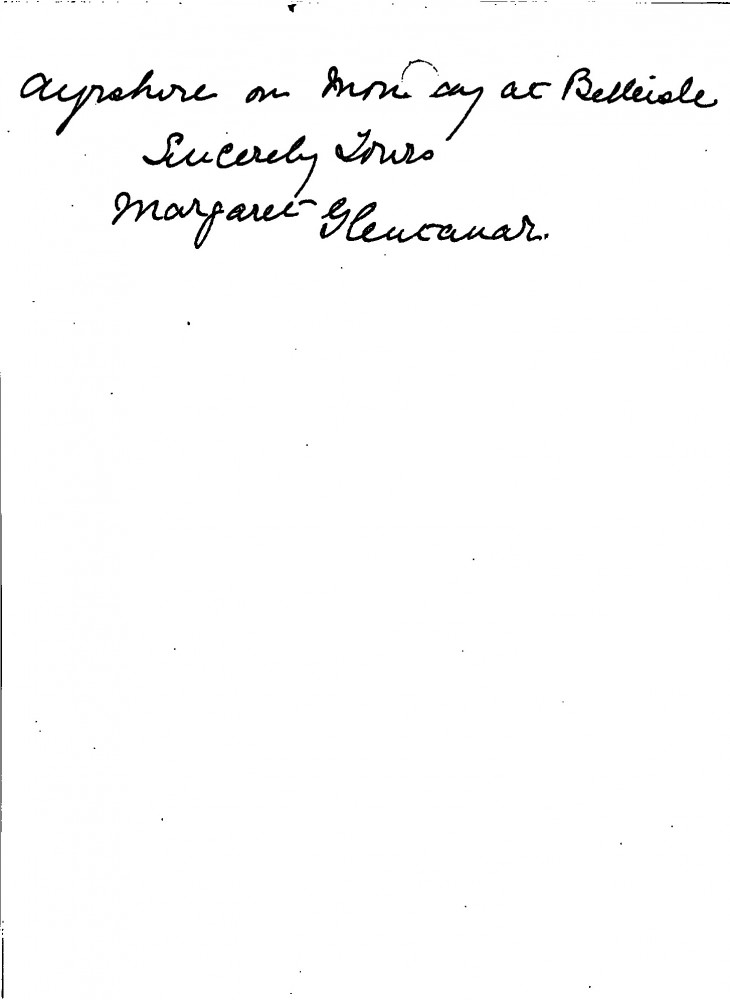 Ayrshire on Monday at Belleisle
Sincerely Yours
Margaret Glentanar.